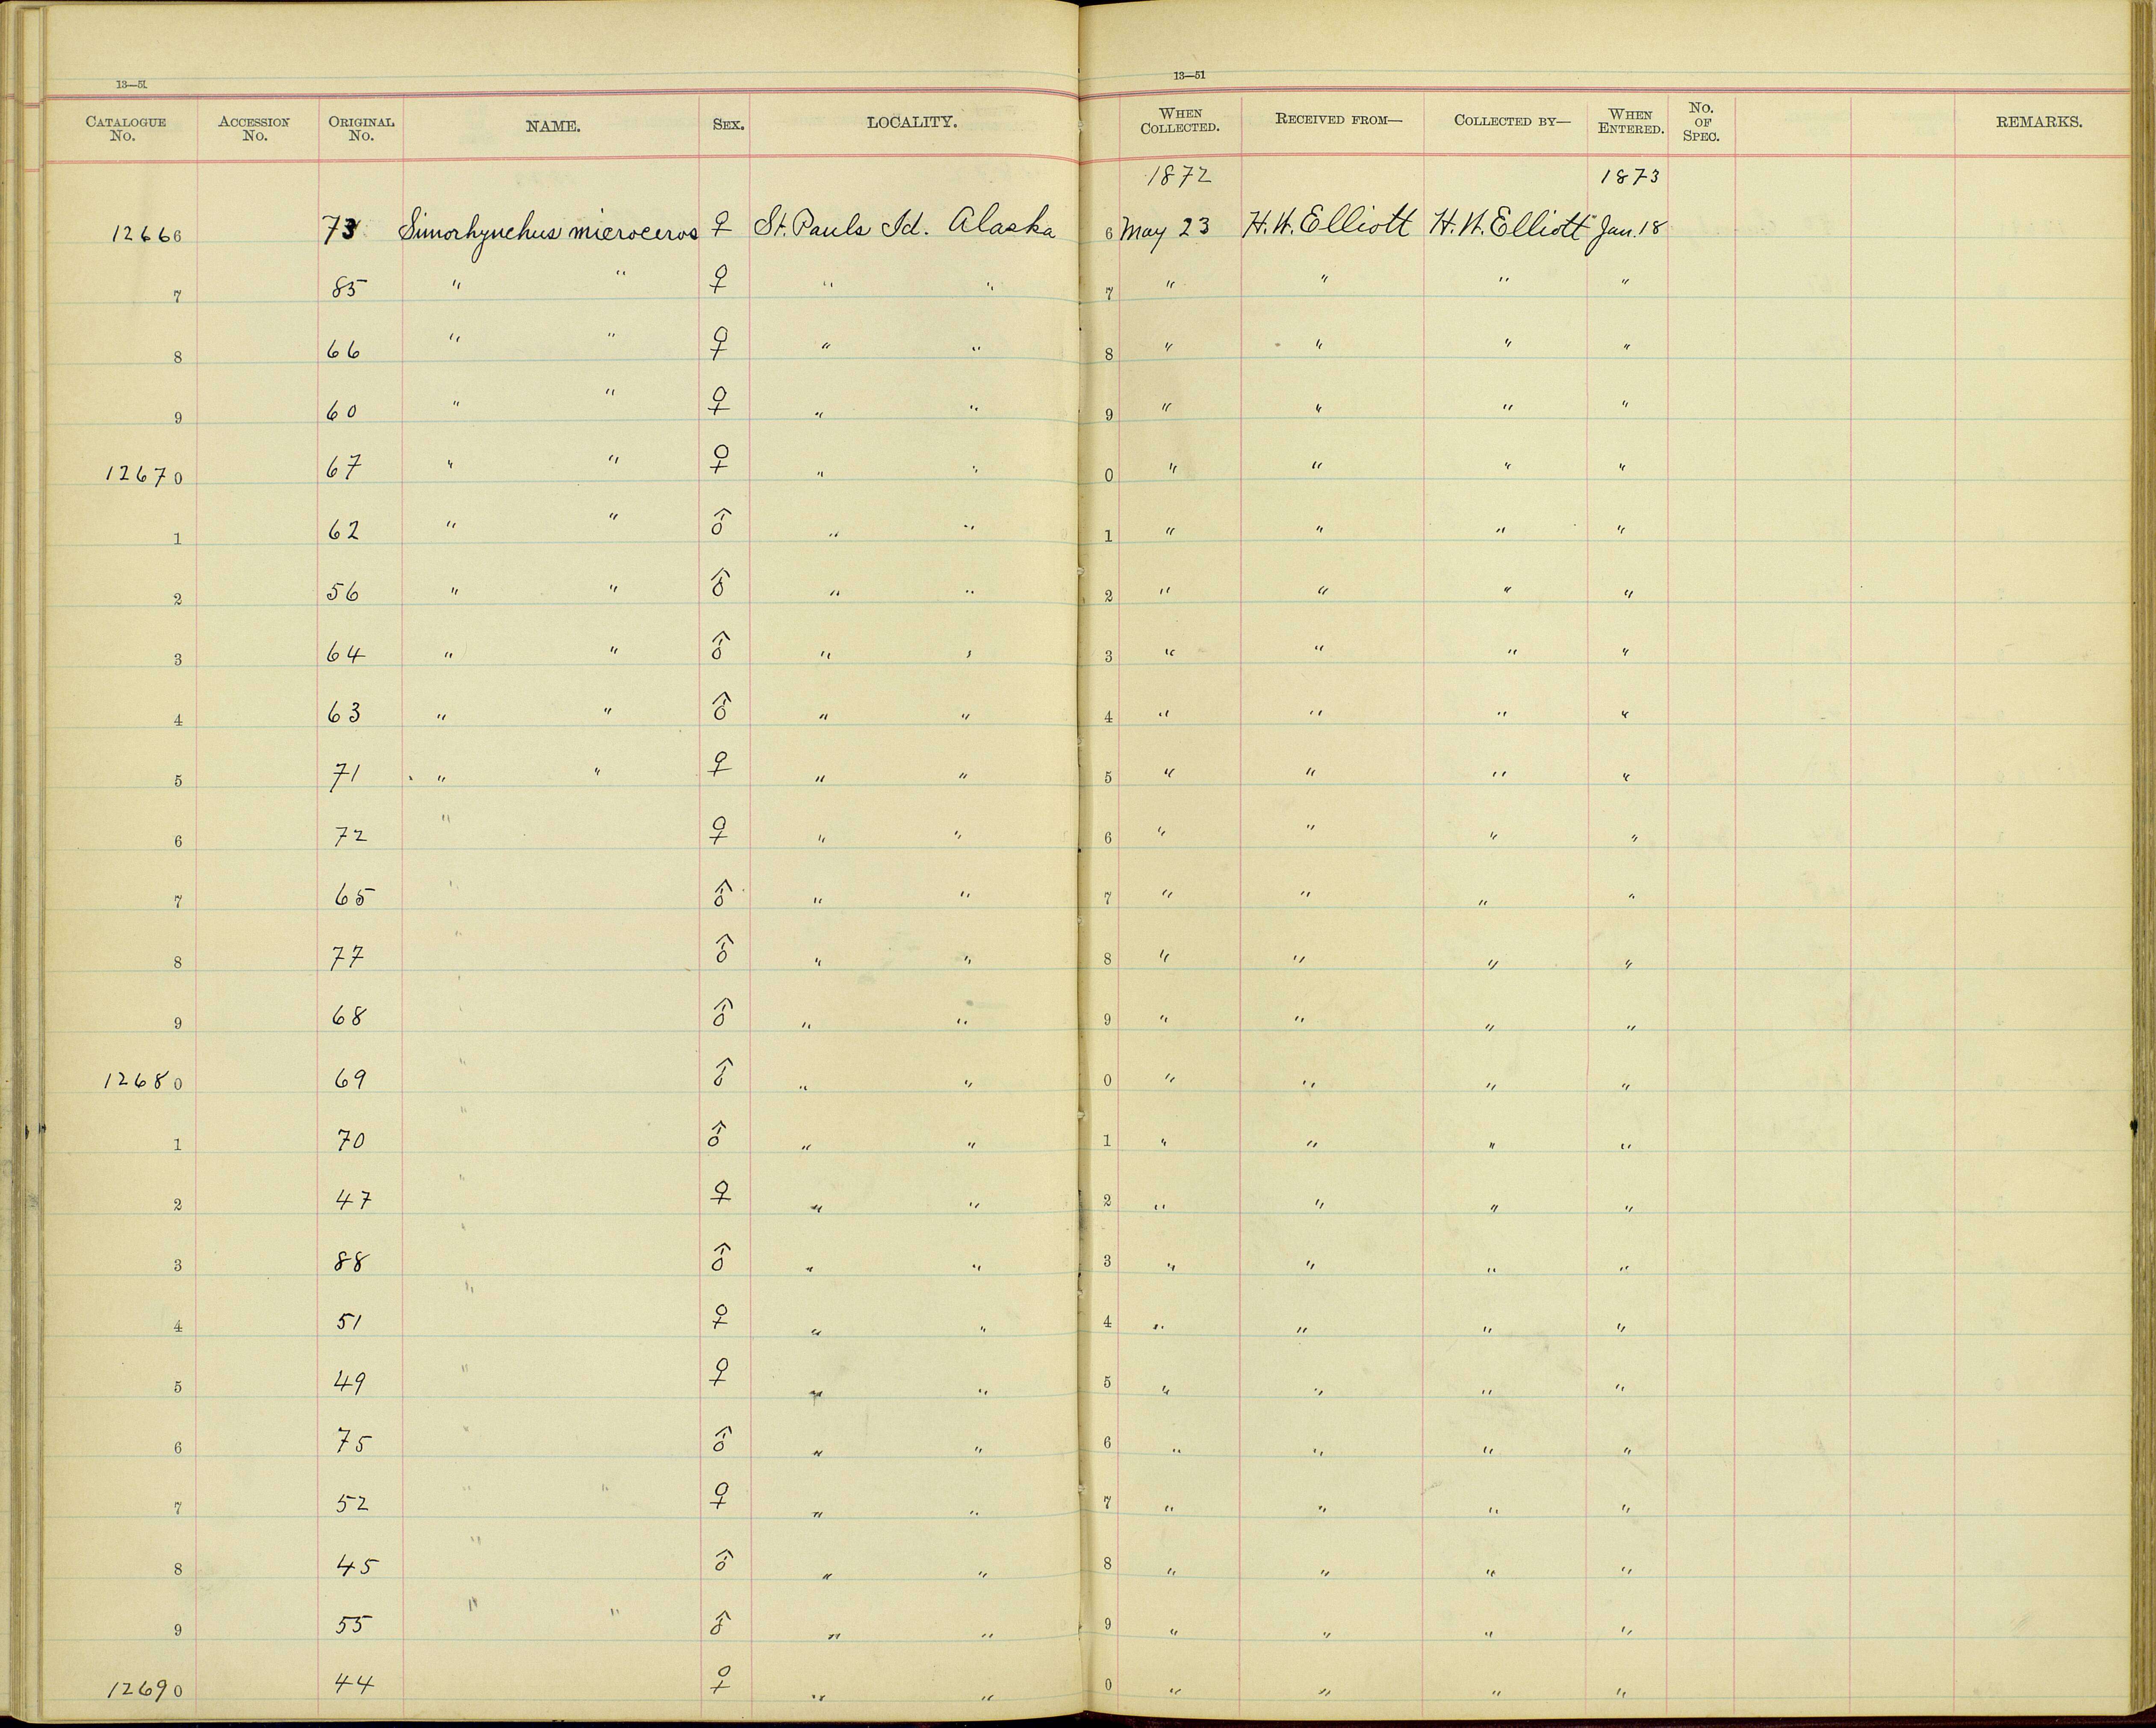 13—51 13—51
CATALOGUE No. ACCESSION No. ORIGINAL No. NAME. SEX. LOCALITY. WHEN COLLECTED. RECEIVED FROM— COLLECTED BY— WHEN ENTERED. No. OF SPEC. REMARKS.
1872 1873
12666 73 Simorhynchus microceros ♀ St. Pauls Id. Alaska 6 May 23 H.W. Elliott H.W. Elliott Jan. 18
7 85 " " ♀ " " 7 " " " "
8 66 " " ♀ " " 8 " " " "
9 60 " " ♀ " " 9 " " " "
12670 67 " " ♀ " " 0 " " " "
1 62 " " ♂ " " 1 " " " "
2 56 " " ♂ " " 2 " " " "
3 64 " " ♂ " " 3 " " " "
4 63 " " ♂ " " 4 " " " "
5 71 " " ♀ " " 5 " " " "
6 72 " ♀ " " 6 " " " "
7 65 " ♂ " " 7 " " " "
8 77 " ♂ " " 8 " " " "
9 68 " ♂ " " 9 " " " "
12680 69 " ♂ " " 0 " " " "
1 70 " ♂ " " 1 " " " "
2 47 " ♀ " " 2 " " " "
3 88 " ♂ " " 3 " " " "
4 51 " ♀ " " 4 " " " "
5 49 " ♀ " " 5 " " " "
6 75 " ♂ " " 6 " " " "
7 52 " " ♀ " " 7 " " " "
8 45 " ♂ " " 8 " " " "
9 55 " " ♂ " " 9 " " " "
12690 44 ♀ " " 0 " " " "